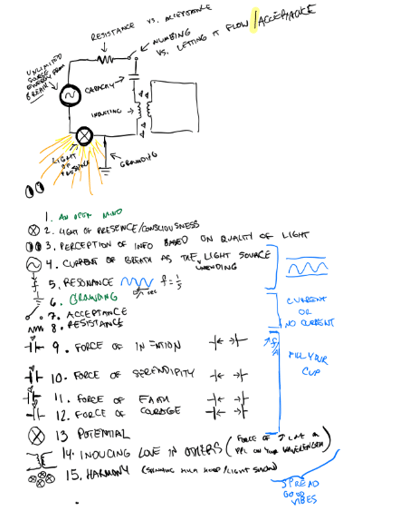 RESISTANCE VS. ACCEPTANCE
NUMBING
VS. LETTING IT FLOW /ACCEPTANCE
UNLIMITED
SOURCE
ENERGY FROM
BREATH
CAPACITY
INDUCTING
LIGHT
OF
PRESENCE
GROUNDING
1. AN OPEN MIND
2. LIGHT OF PRESENCE/CONSCIOUSNESS
3. PERCEPTION OF INFO BASED ON QUALITY OF LIGHT
4. CURRENT OF BREATH AS THE UNENDING LIGHT SOURCE
5. RESONANCE
6. GROUNDING
7. ACCEPTANCE
8. RESISTANCE
CURRENT
OR
NO CURRENT
9. FORCE OF INTENTION
FILL YOUR
CUP
10. FORCE OF SERENDIPITY
11. FORCE OF FAITH
12. FORCE OF COURAGE
13 POTENTIAL
14. INDUCING LOVE IN OTHERS (FORCE OF LOVE ON PPL ON YOUR WAVELENGTH)
15. HARMONY (SPINNING HULA HOOP/LIGHT SHOW)
SPREAD
GOOD
VIBES